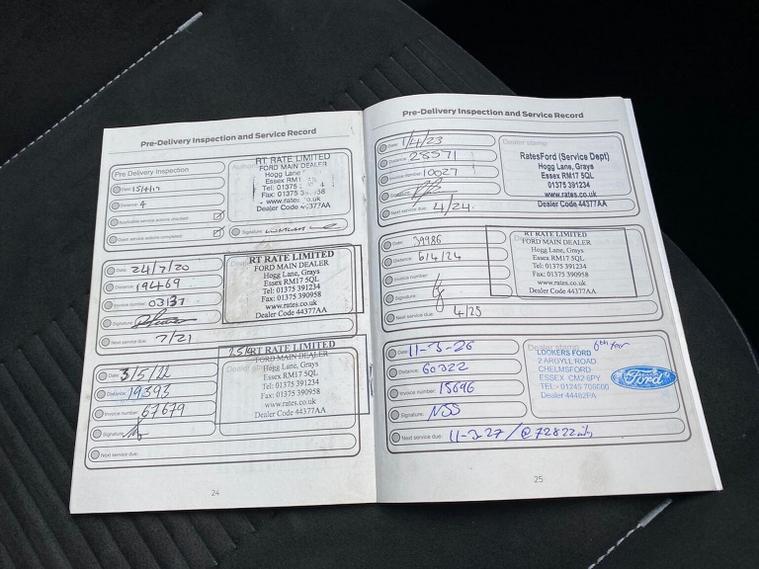 Pre-Delivery Inspection and Service Record
Pre Delivery Inspection
Date
Distance: 4
Applicable service actions checked:
Quest service actions completed:
RT RATE LIMITED
FORD MAIN DEALER
Hogg Lane
Essex RM1
Tel: 01375
Fax: 01375
www.rates.co.uk
Dealer Code 44377AA
Signature:
Date: 24/7/20
Distance: 19469
Invoice number: 03137
Signature:
Next service due: 7/21
RT RATE LIMITED
FORD MAIN DEALER
Hogg Lane, Grays
Essex RM17 5QL
Tel: 01375 391234
Fax: 01375 390958
www.rates.co.uk
Dealer Code 44377AA
Date: 3/5/22
Distance: 19393
Invoice number: 67679
Signature:
Next service due:
RT RATE LIMITED
FORD MAIN DEALER
Hogg Lane, Grays
Essex RM17 5QL
Tel: 01375 391234
Fax: 01375 390958
www.rates.co.uk
Dealer Code 44377AA
24
Pre-Delivery Inspection and Service Record
Date: 1/4/23
Distance: 28571
Invoice number: 10027
Signature:
Next service due: 4/24
Dealer stamp
RatesFord (Service Dept)
Hogg Lane, Grays
Essex RM17 5QL
01375 391234
www.rates.co.uk
Dealer Code 44377AA
Date: 39986
Distance: 6/4/24
Invoice number:
Signature:
Next service due: 4/25
RT RATE LIMITED
FORD MAIN DEALER
Hogg Lane, Grays
Essex RM17 5QL
Tel: 01375 391234
Fax: 01375 390958
www.rates.co.uk
Dealer Code 44377AA
Date: 11-3-26
Distance: 60322
Invoice number: 15696
Signature: NSS
Next service due: 11-3-27 / @ 72822
Dealer stamp 6th Year
LOOKERS FORD
2 ARGYLL ROAD
CHELMSFORD
ESSEX CM2 6PY
TEL:- 01245
Dealer 44482PA
Ford
25